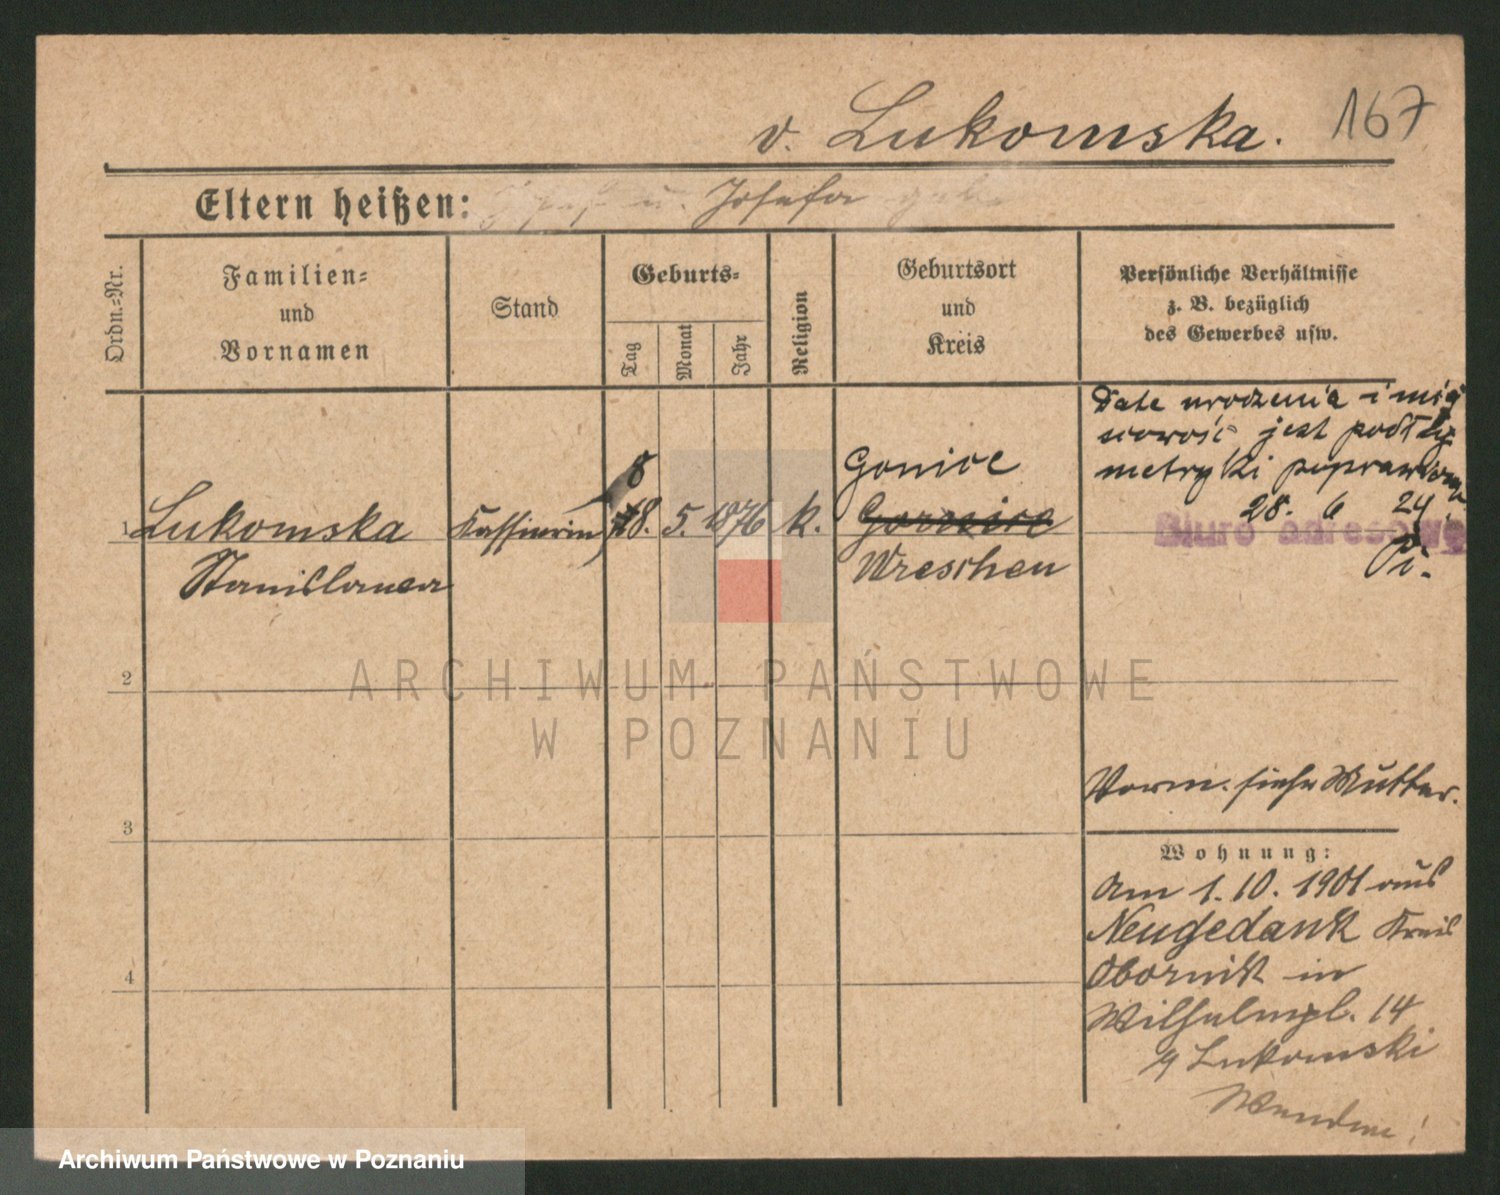 167
v. Lukomska.
Eltern heißen: u. Josefa geb.
Ordn.-Nr.
Familien-
und
Vornamen
Stand
Geburts-
Tag
Monat
Jahr
Religion
Geburtsort
und
Kreis
Persönliche Verhältnisse
z. B. bezüglich
des Gewerbes usw.
1
Lukomska
Stanislawa
Kassirerin
8
18. 5. 1876
k.
Gonice
Gorzice
Wreschen
Date urodzenia i miej
scowość jest podług
metryki poprawiona
28. 6 24.
Biuro adresowe
Pi.
2
3
4
Vorm. siehe Mutter.
Wohnung:
Am 1. 10. 1901 aus
Neugedank Kreis
Obornik in
Wilhelmpl. 14
b/ Lukomski
Wenden!
ARCHIWUM PAŃSTWOWE
W POZNANIU
Archiwum Państwowe w Poznaniu